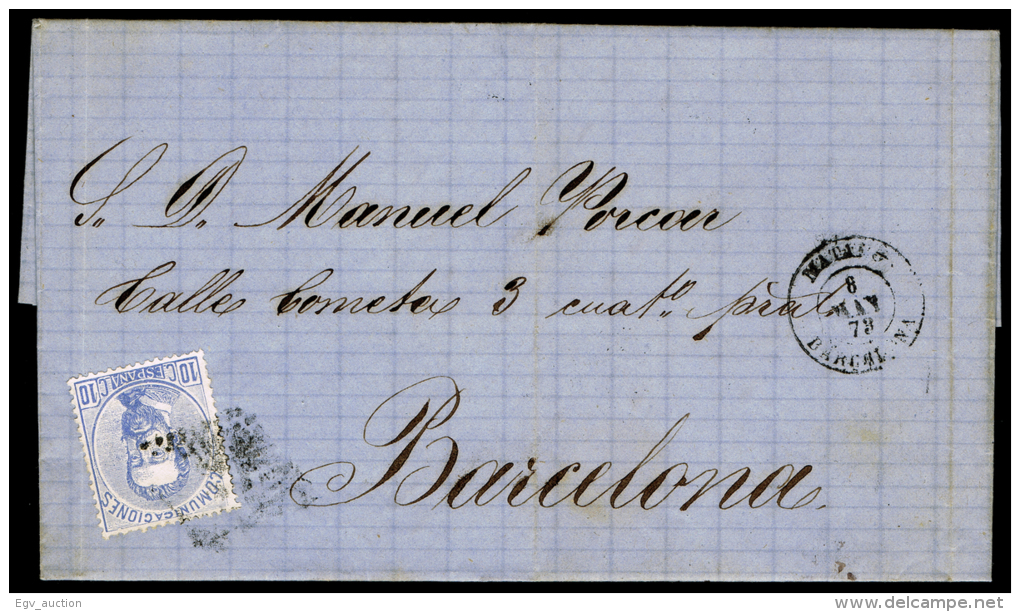 S. D. Manuel Porcar
Calle Cometa 3 cuatº pral
Barcelona
8
MAY
73
BARCELONA
10 C. ESPAÑA C. 10
COMUNICACIONES
Egv_auction
www.delcampe.net